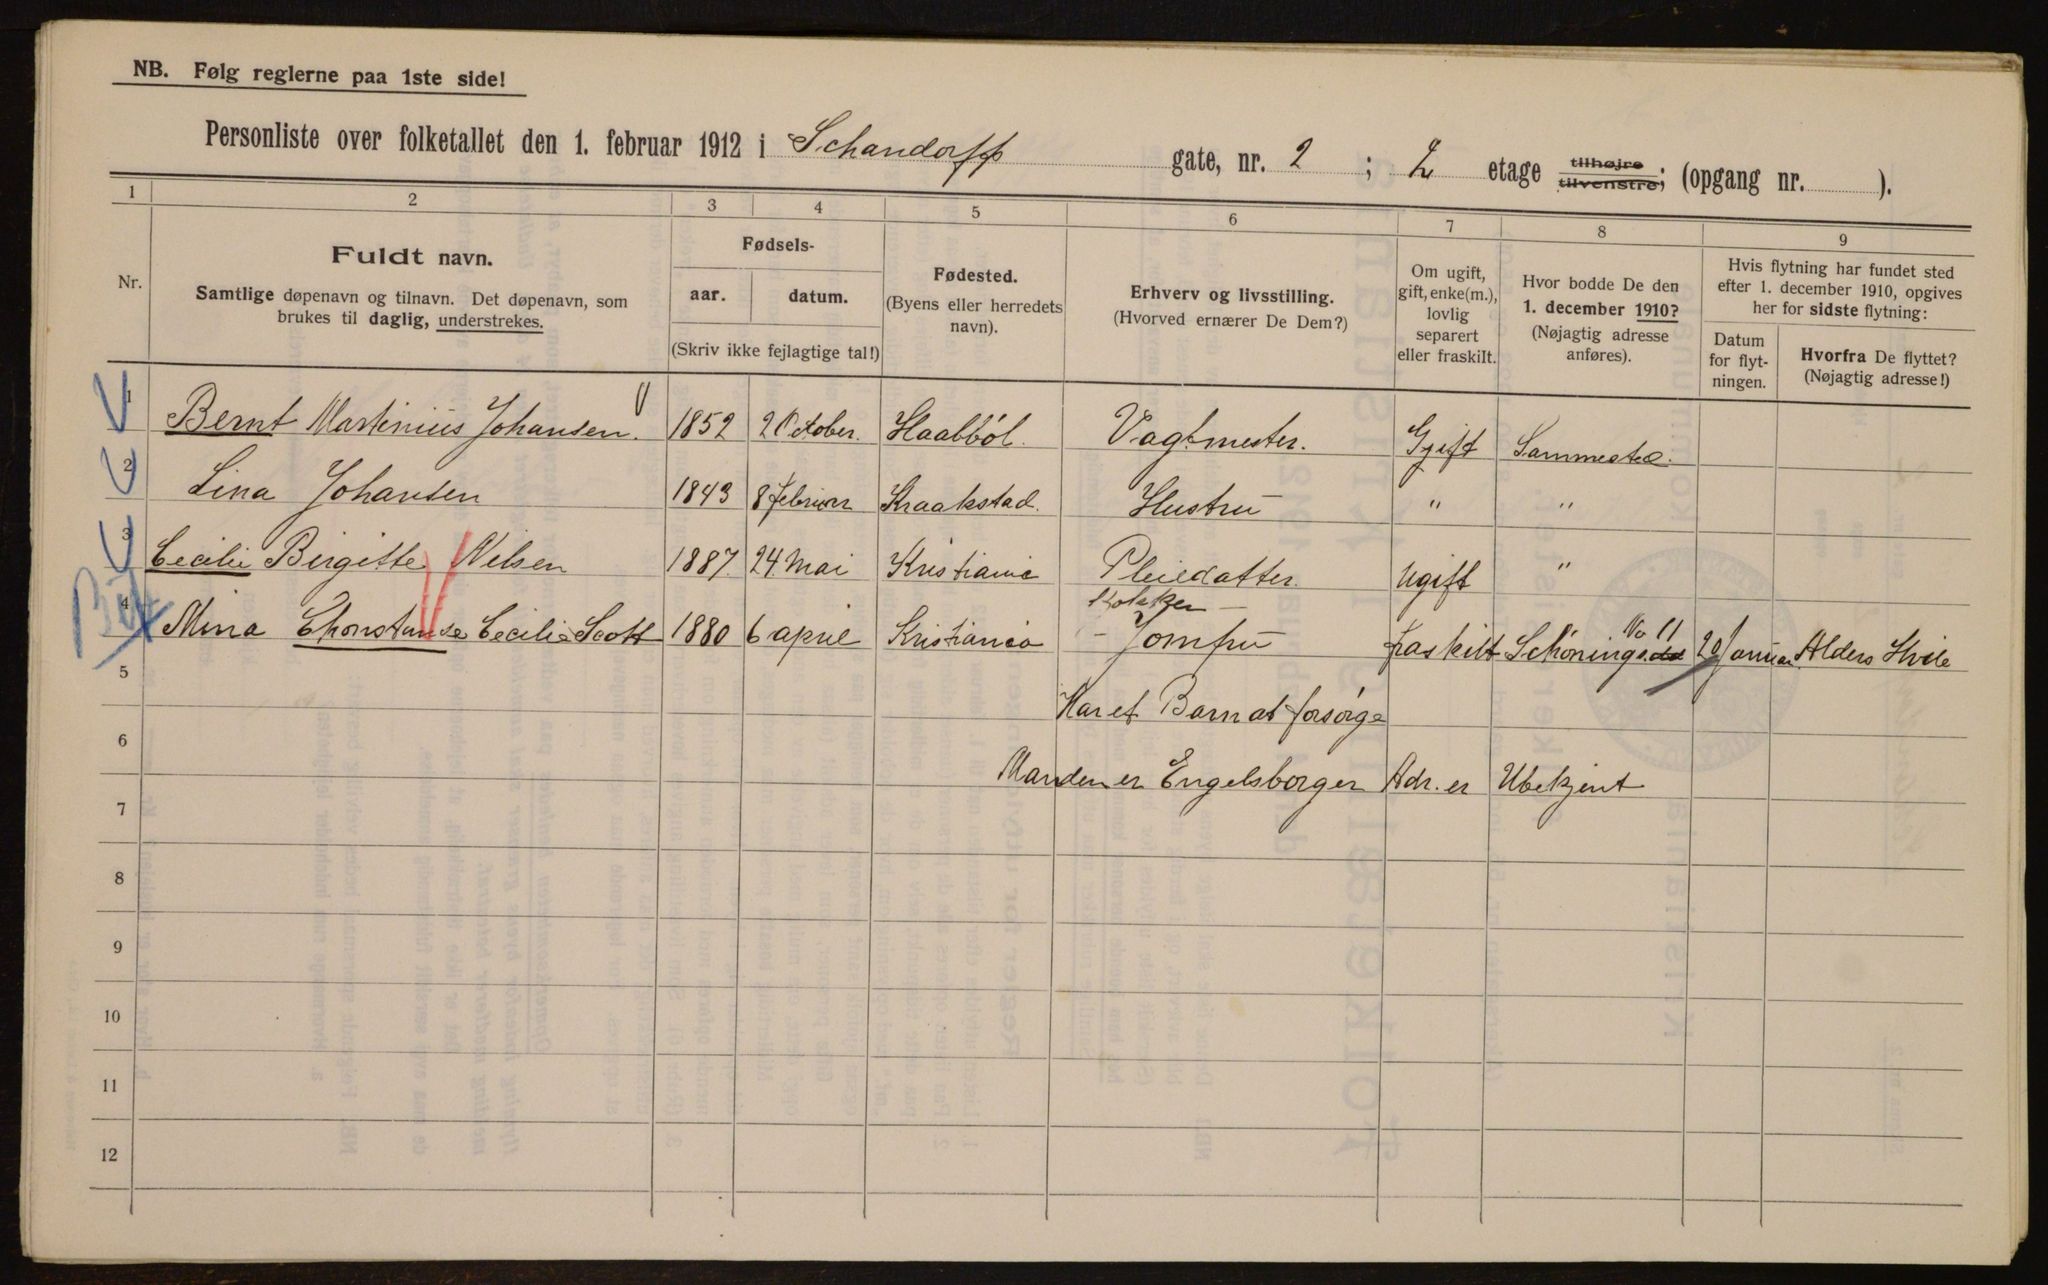 NB. Følg reglerne paa 1ste side!
Personliste over folketallet den 1. februar 1912 i Schandorff gate, nr. 2 ; 2 etage tilhøjre tilvenstre; (opgang nr. ).
1 2 3 4 5 6 7 8 9
Nr.
Fuldt navn.
Samtlige døpenavn og tilnavn. Det døpenavn, som
brukes til daglig, understrekes.
Fødsels-
aar. datum.
(Skriv ikke fejlagtige tal!)
Fødested.
(Byens eller herredets
navn).
Erhverv og livsstilling.
(Hvorved ernærer De Dem?)
Om ugift,
gift, enke(m.),
lovlig
separert
eller fraskilt.
Hvor bodde De den
1. december 1910?
(Nøjagtig adresse
anføres).
Hvis flytning har fundet sted
efter 1. december 1910, opgives
her for sidste flytning:
Datum
for flyt-
ningen.
Hvorfra De flyttet?
(Nøjagtig adresse!)
1 Bernt Martinius Johansen. 1852 2 October. Haabböl. Vagtmester. Gjift Sammested.
2 Lina Johansen 1843 8 Februar Kraakstad. Hustru " "
3 Cecilie Birgitte Nilsen 1887. 24. Mai Kristiania Pleiedatter. Ugift "
Kokken
4 Mina Chonstanse Cecilie Scott 1880 6 april Kristiania - Jomfru fraskilt Schönings No 11 20 Januar Alders Hvile
5 Har et Barn at forsörge
6 Manden er Engelsborger Adr. er Ubekjent
7
8
9
10
11
12